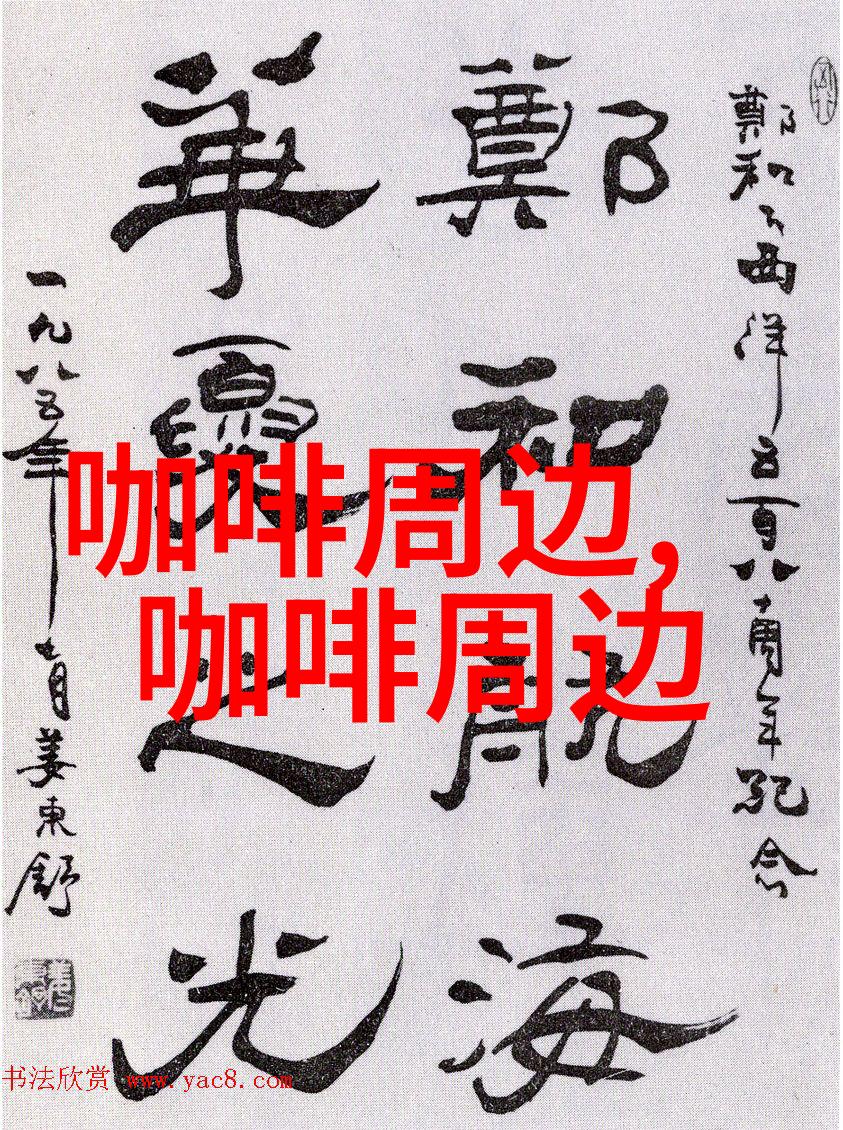 鄭和下西洋五百八十周年紀念
鄭和航海
華夏之光
一九八五年七月姜東舒
咖啡周边,
咖啡周边
书法欣赏 www.yac8.com